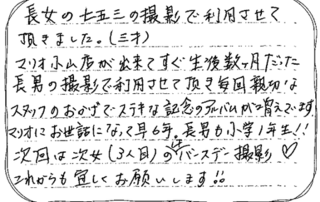 長女の七五三の撮影で利用させて
頂きました。(三才)
マリオ小山店が出来てすぐ生後数ヶ月だった
長男の撮影で利用させて頂き毎回親切な
スタッフのおかげでステキな記念のアルバムが増えています
マリオにお世話になって早6年。長男も小学1年生!!
次回は次女(3人目)の1stバースデー撮影♡
これからも宜しくお願いします!!